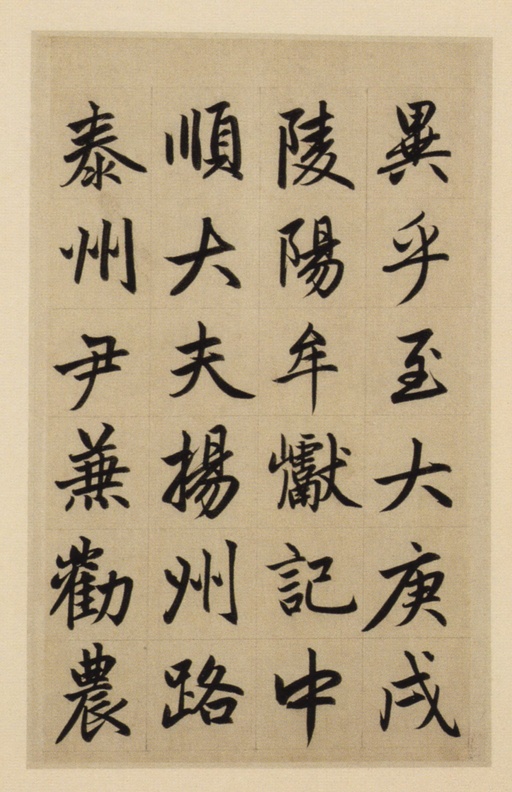 異乎至大庚戌
陵陽牟巘記中
順大夫揚州路
泰州尹蕪勸農